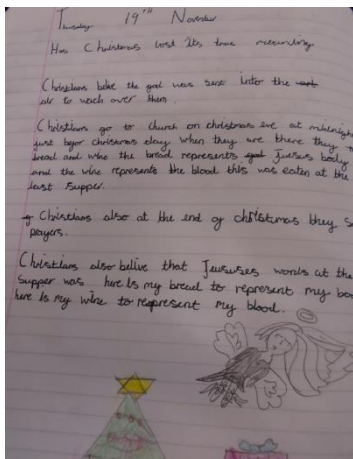 Thursday 19th November
Has Christmas lost its true meaning
Christians belive the god was sent into the
air to wach over them.
Christians go to church on christmas eve at midnight
just before christmas day when they are there they
bread and wine the bread represents Juesus body
and the wine represents the blood this was eaten at the
last supper.
Christians also at the end of christmas they
prayers.
Christians also belive that Jeususes words at the
supper was here is my bread to represent my
here is my wine to represent my blood.